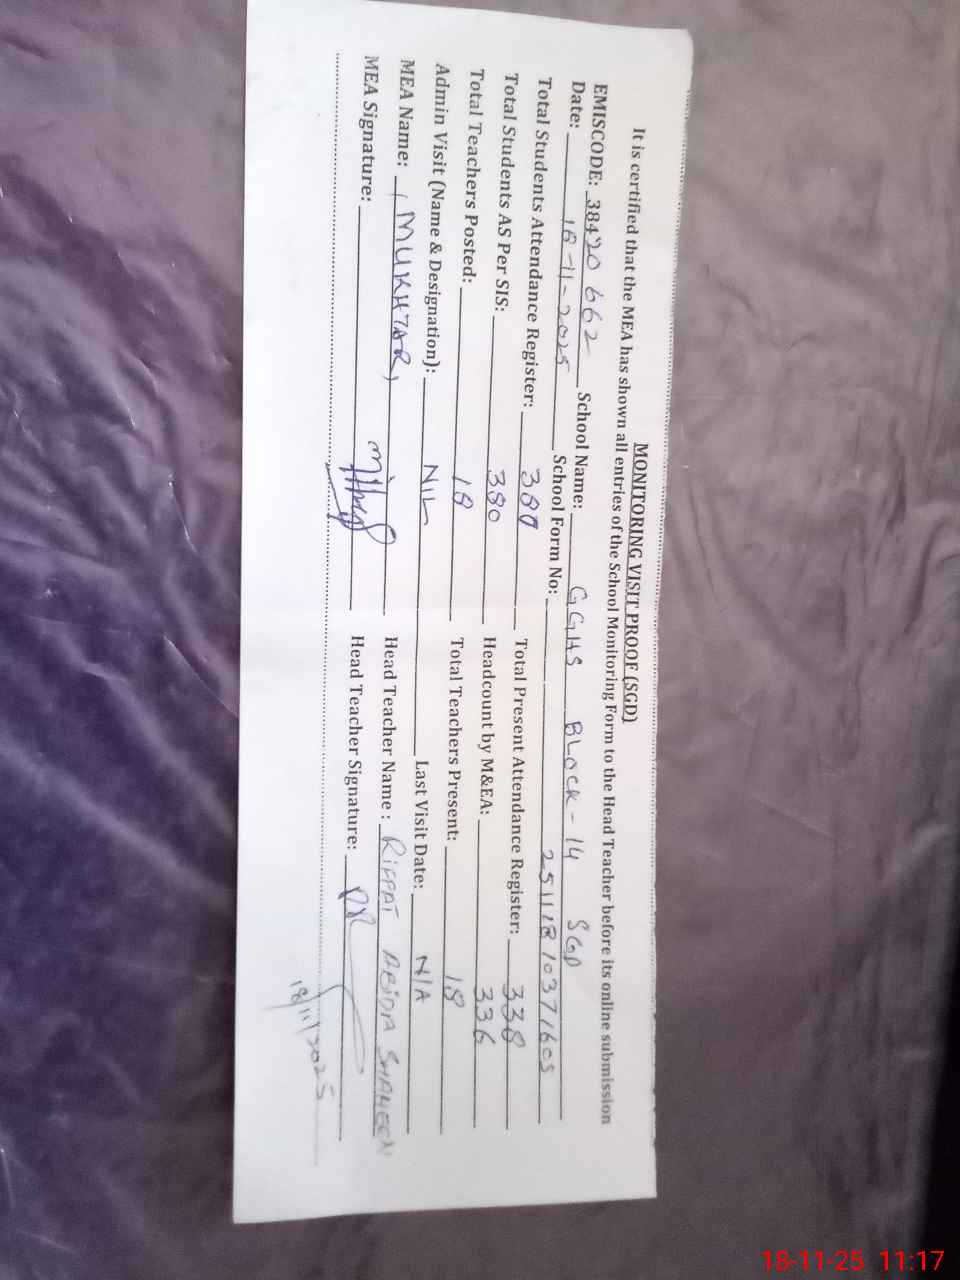 MONITORING VISIT PROOF (SGD)
It is certified that the MEA has shown all entries of the School Monitoring Form to the Head Teacher before its online submission
EMISCODE: 38420662 School Name: GGHS BLOCK-14 SGD
Date: 18-11-2025 School Form No: 2511181037160S
Total Students Attendance Register: 380 Total Present Attendance Register: 338
Total Students AS Per SIS: 380 Headcount by M&EA: 336
Total Teachers Posted: 18 Total Teachers Present: 18
Admin Visit (Name & Designation): NIL Last Visit Date: N/A
MEA Name: (MUKHTAR) Head Teacher Name : RIFFAT ABIDA SHAHEEN
MEA Signature: Head Teacher Signature:
18/11/2025
18-11-25 11:17